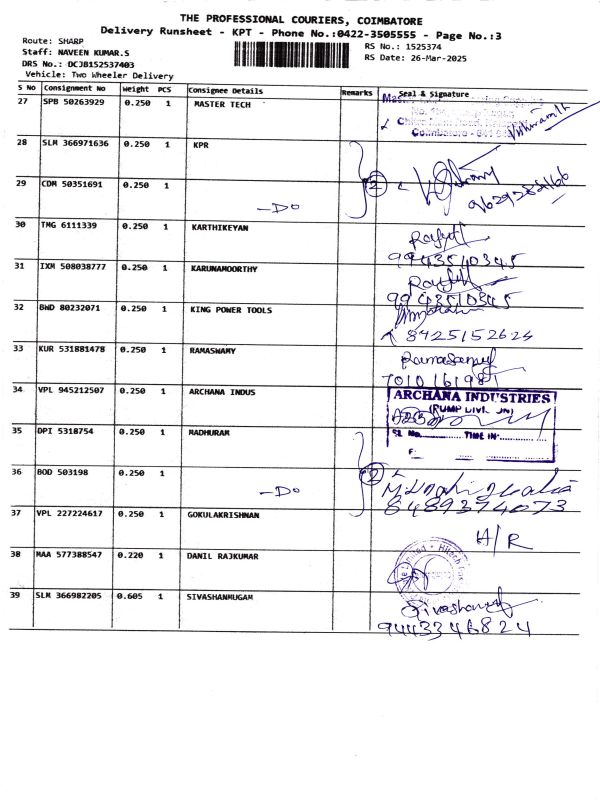 THE PROFESSIONAL COURIERS, COIMBATORE
Delivery Runsheet - KPT - Phone No.:0422-3505555 - Page No.:3
Route: SHARP
Staff: NAVEEN KUMAR.S
DRS No.: DCJB152537403
Vehicle: Two Wheeler Delivery
RS No.: 1525374
RS Date: 26-Mar-2025
S No Consignment No Weight PCS Consignee Details Remarks Seal & Signature
27 SPB 50263929 0.250 1 MASTER TECH
Coimbatore - 641
28 SLM 366971636 0.250 1 KPR
29 CDM 50351691 0.250 1
-Do 2
30 TMG 6111339 0.250 1 KARTHIKEYAN
9943510345
31 IXM 508038777 0.250 1 KARUNAMOORTHY
9943510345
32 BWD 80232071 0.250 1 KING POWER TOOLS
8425152624
33 KUR 531881478 0.250 1 RAMASWAMY
Ramasamy
7010161981
34 VPL 945212507 0.250 1 ARCHANA INDUS
ARCHANA INDUSTRIES
(PUMP DIVISION)
SL No. TIME IN
35 DPI 5318754 0.250 1 MADHURAM
36 BOD 503198 0.250 1
-Do 2
8489374073
37 VPL 227224617 0.250 1 GOKULAKRISHNAN
H/R
38 MAA 577388547 0.220 1 DANIL RAJKUMAR
39 SLM 366982205 0.605 1 SIVASHANMUGAM
9443346824